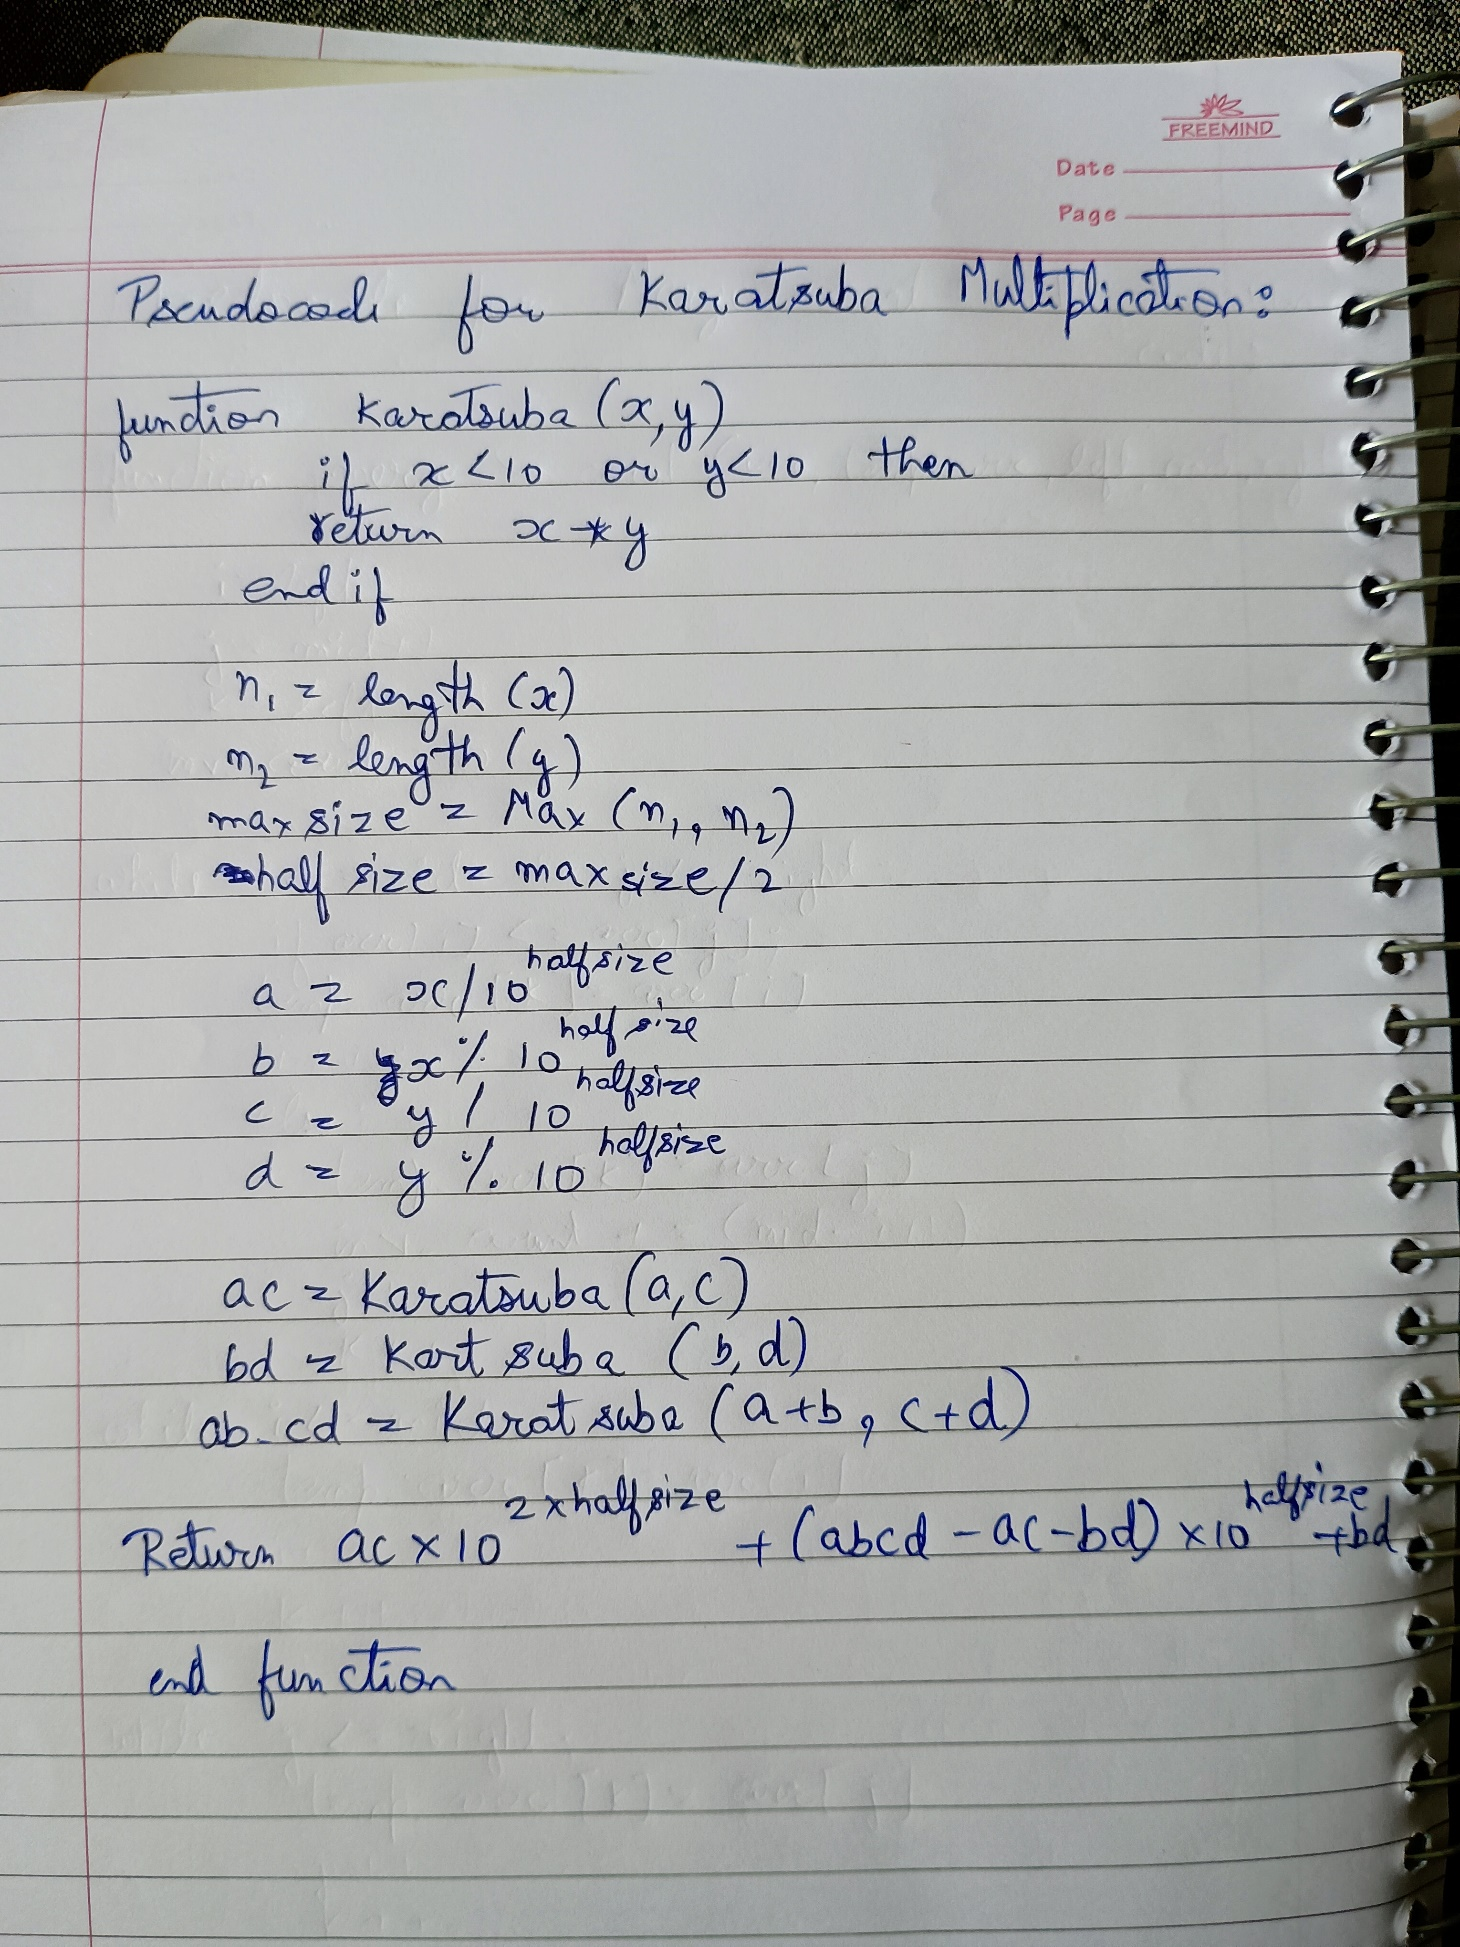 FREEMIND
Date
Page
Pseudocode for Karatsuba Multiplication:
function Karatsuba (x,y)
if x<10 or y<10 then
return x * y
end if
n₁ = length (x)
n₂ = length (y)
max size = Max (n₁, n₂)
half size = max size/2
a = x/10^halfsize
b = x % 10^half size
c = y / 10^halfsize
d = y % 10^halfsize
ac = Karatsuba (a,c)
bd = Kart suba (b,d)
ab-cd = Karat suba (a+b, c+d)
Return ac x 10^2xhalfsize + (abcd - ac-bd) x10^halfsize +bd
end function